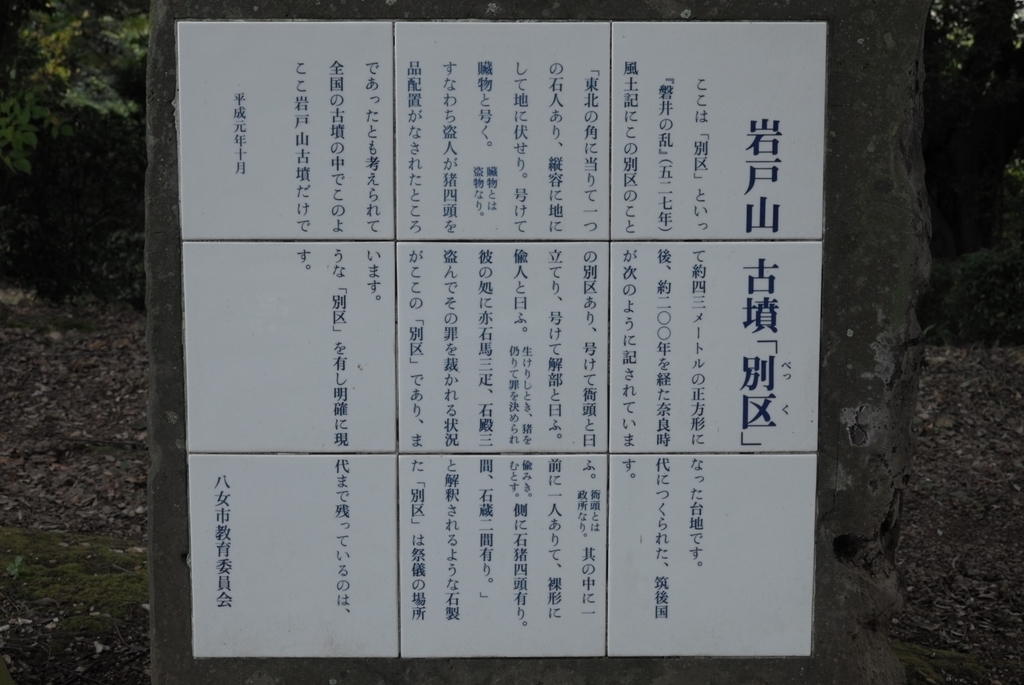 岩戸山古墳「別区」
べっく
ここは「別区」といって約四三メートルの正方形になった台地です。
『磐井の乱』(五二七年)後、約二〇〇年を経た奈良時代につくられた、筑後国
風土記にこの別区のことが次のように記されています。
「東北の角に当りて一つの別区あり、号けて衙頭と曰ふ。衙頭とは政所なり。其の中に一
の石人あり、縦容に地に立てり、号けて解部と曰ふ。前に一人ありて、裸形に
して地に伏せり。号けて偸人と曰ふ。生けりしとき、猪を仍りて罪を決められ偸みき。むとす。側に石猪四頭有り。
贓物と号く。贓物とは盗物なり。彼の処に亦石馬三疋、石殿三間、石蔵二間有り。」
すなわち盗人が猪四頭を盗んでその罪を裁かれる状況と解釈されるような石製
品配置がなされたところがここの「別区」であり、また「別区」は祭儀の場所
であったとも考えられています。
全国の古墳の中でこのような「別区」を有し明確に現代まで残っているのは、
ここ岩戸山古墳だけです。
平成元年十月
八女市教育委員会